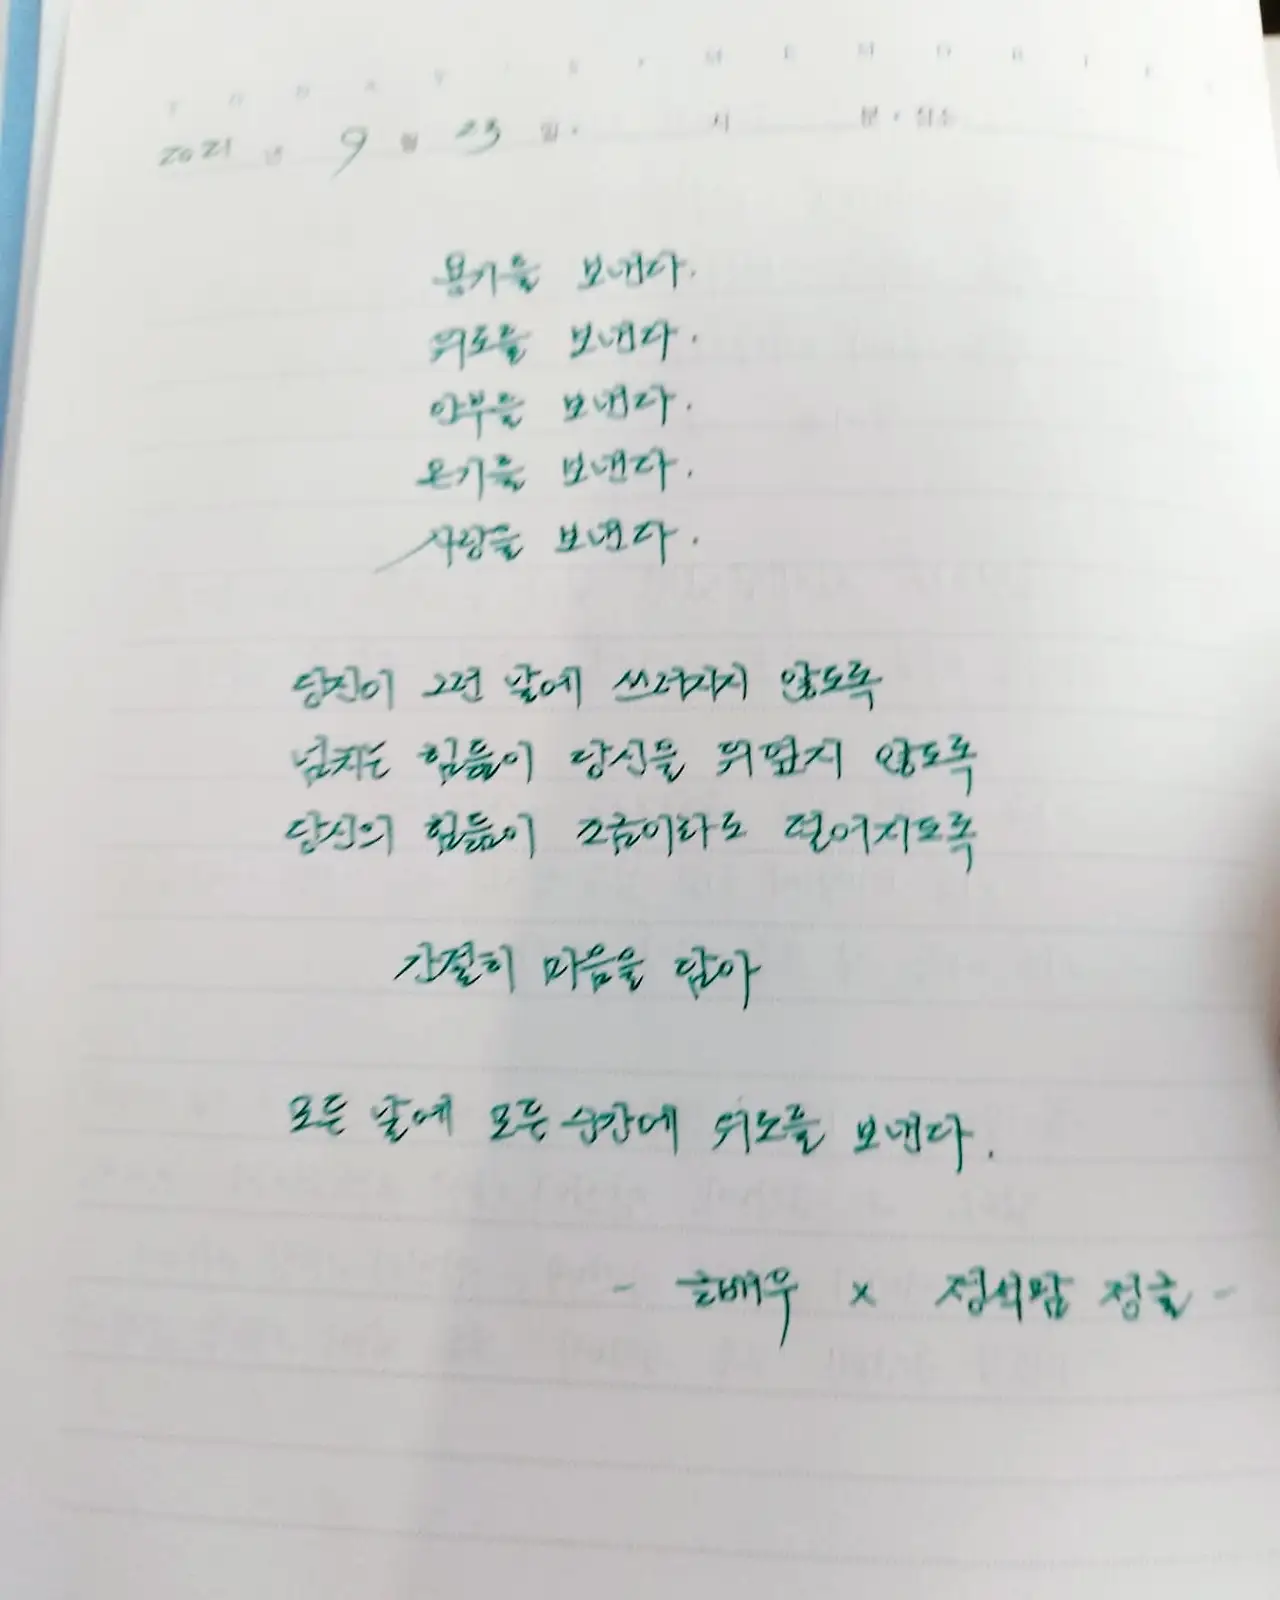 TODAY'S MEMORIES
2021 년 9 월 23 일. 시 분. 장소
용기을 보낸다.
위로를 보낸다.
안부를 보낸다.
온기를 보낸다.
사랑을 보낸다.
당신이 그런 날에 쓰러지지 않도록
넘치는 힘듦이 당신을 뒤덮지 않도록
당신의 힘듦이 조금이라도 덜어지도록
간절히 마음을 담아
모든 날에 모든 순간에 위로를 보낸다.
- 글배우 x 정석맘 정글 -